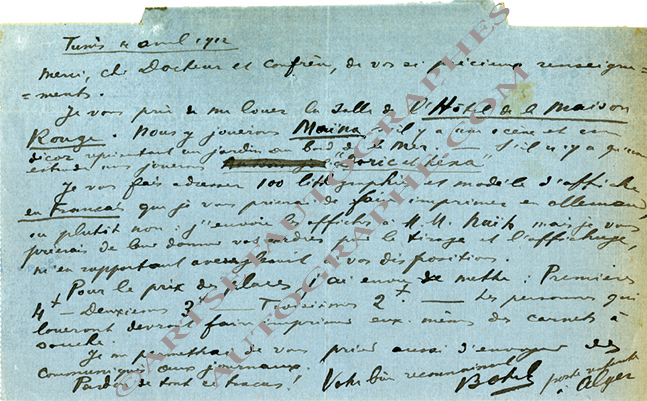 Tunis 4 avril 1912
Merci, cher Docteur et confrère, de vos si précieux renseigne=
=ments.
Je vous prie de me louer la salle de l'Hôtel de la Maison
Rouge. Nous y jouerons Maïna s'il y a une scène et un
décor représentant un jardin au bord de la mer. — S'il n'y a qu'une
estrade nous jouerons "Yoric et Léna"
Je vous fais adresser 100 lithographies et modèle d'affiche
en Français que je vous prierai de faire imprimer en allemand,
ou plutôt non : j'envoie les affiches à M.M. mais je vous
prierais de leur donner vos ordres pour le tirage et l'affichage,
m'en rapportant aveuglément à vos dispositions.
Pour le prix des places j'ai envie de mettre : Premières
4f — Deuxièmes 3f — Troisièmes 2f — Les personnes qui
loueront devront faire imprimer eux-mêmes des carnets à
souche.
Je me permettrai de vous prier aussi d'envoyer des
communiqués aux journaux.
Pardon de tout ce tracas ! Votre bien reconnaissant
Botrel poste restante
à Alger
©ARTSHEAUTOGRAPHES
AUTOGRAPHE.COM